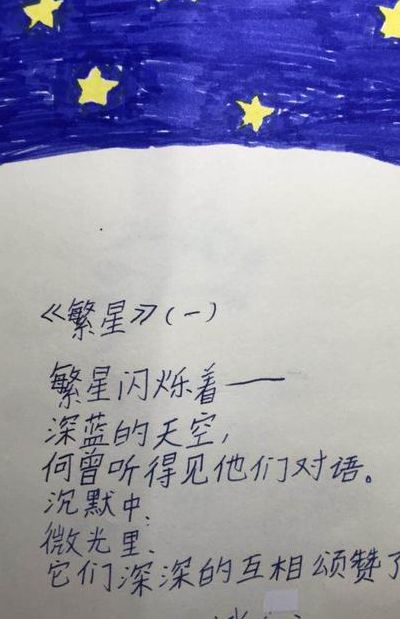 《繁星》(一)
繁星闪烁着——
深蓝的天空,
何曾听得见他们对语。
沉默中、
微光里、
它们深深的互相颂赞了